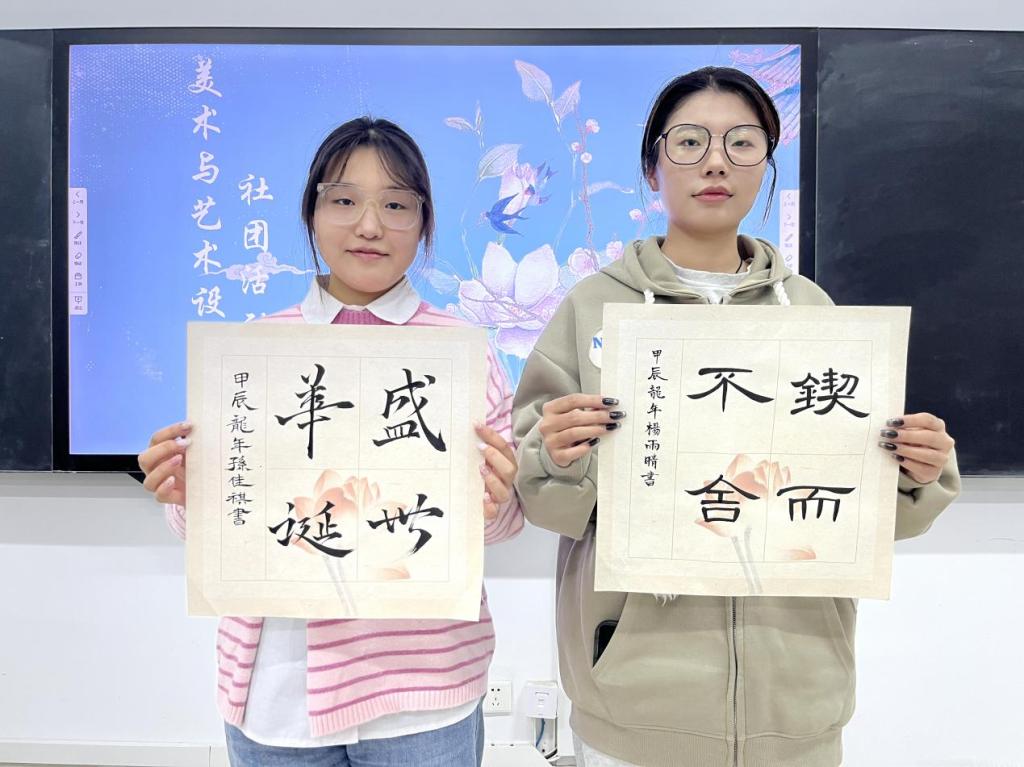 美术与艺术设
社团活
盛世
華诞
甲辰龍年孫佳祺書
鍥而
不舍
甲辰龍年楊雨晴書